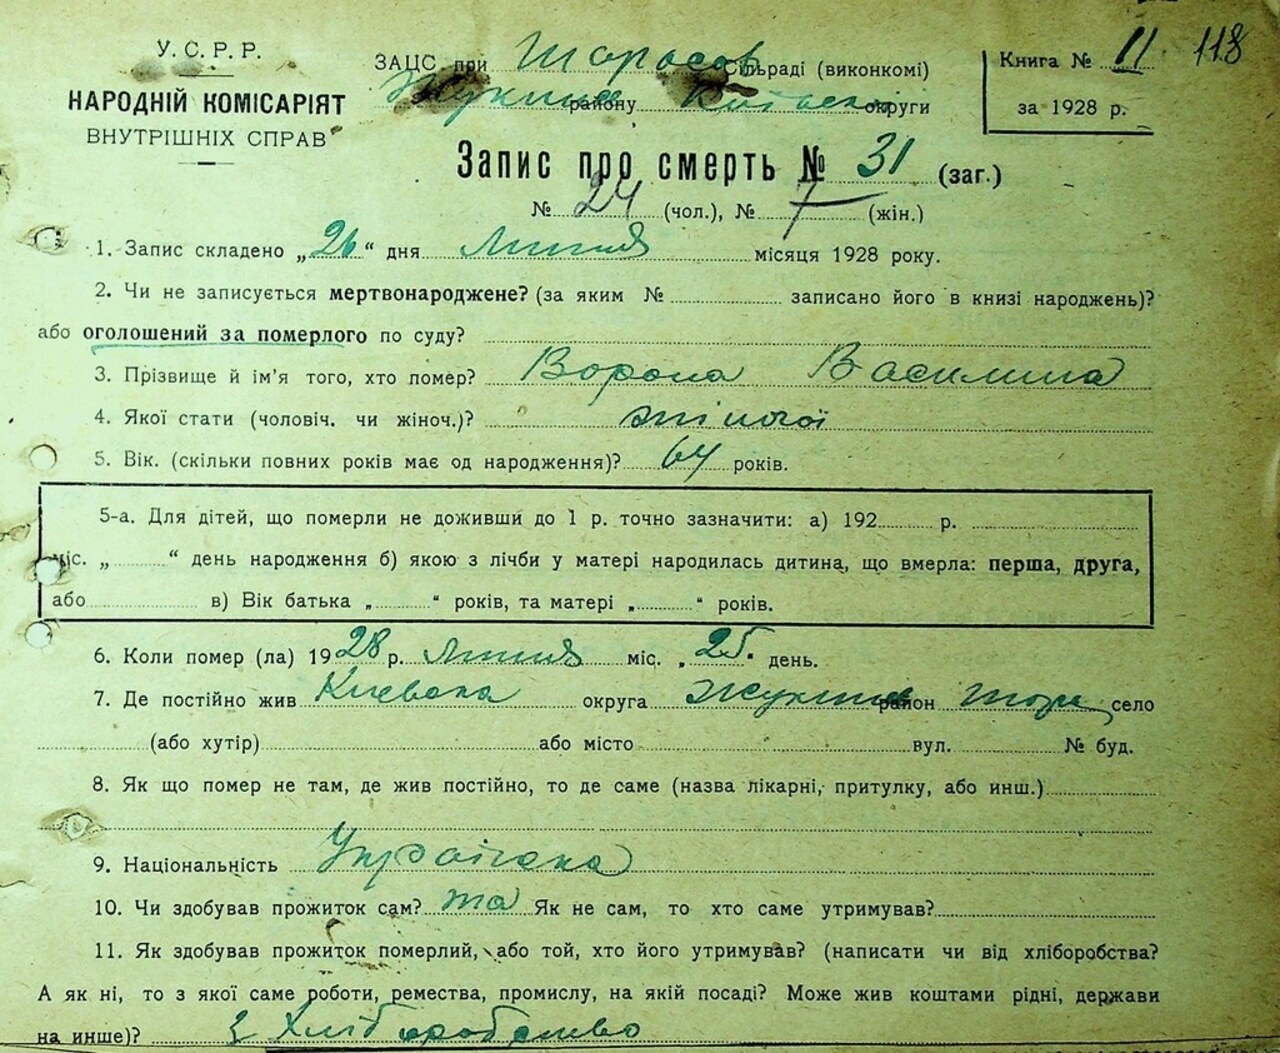 У. С. Р. Р.
НАРОДНІЙ КОМІСАРІЯТ
ВНУТРІШНІХ СПРАВ
ЗАЦС при Тарасов Сільраді (виконкомі)
району округи
Книга № 11 118
за 1928 р.
Запис про смерть № 31 (заг.)
№ 24 (чол.), № 7 (жін.)
1. Запис складено „26“ дня Липня місяця 1928 року.
2. Чи не записується мертвонароджене? (за яким № записано його в книзі народжень)?
або оголошений за померлого по суду?
3. Прізвище й ім'я того, хто помер? Ворона Василина
4. Якої стати (чоловіч. чи жіноч.)? жіночої
5. Вік. (скільки повних років має од народження)? 64 років.
5-а. Для дітей, що померли не доживши до 1 р. точно зазначити: а) 192 р.
міс. „ “ день народження б) якою з лічби у матері народилась дитина, що вмерла: перша, друга,
або в) Вік батька „ “ років, та матері „ “ років.
6. Коли помер (ла) 1928 р. Липня міс. „25“ день.
7. Де постійно жив Київська округа район село
(або хутір) або місто вул. № буд.
8. Як що помер не там, де жив постійно, то де саме (назва лікарні, притулку, або инш.)
9. Національність Українка
10. Чи здобував прожиток сам? та Як не сам, то хто саме утримував?
11. Як здобував прожиток померлий, або той, хто його утримував? (написати чи від хліборобства?
А як ні, то з якої саме роботи, ремества, промислу, на якій посаді? Може жив коштами рідні, держави
на инше)? з Хліборобство